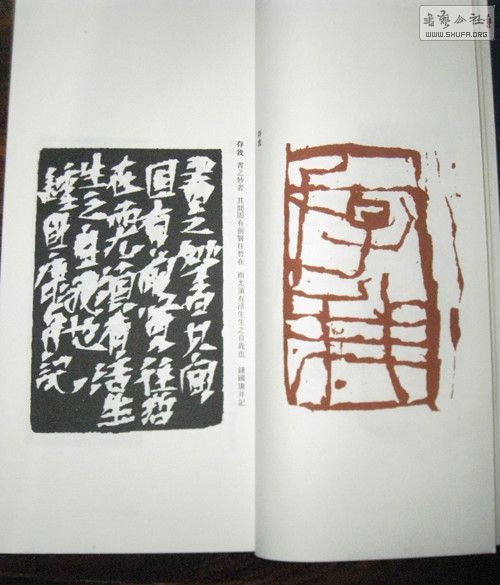 書藝公社
WWW.SHUFA.ORG
存我
存我
存我 書之妙者 其間固有前賢往哲在 而尤須有活生生之自我也 鍾國康并記
書之妙者其間
固有前賢往哲
在而尤須有活生
生之自我也
鍾國康并記